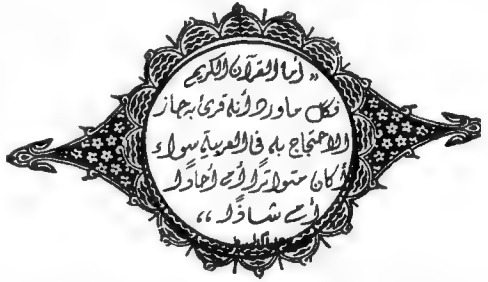 ,, أما القرآن الكريم
فكل ما ورد أنه قرئ به جاز
الاحتجاج به فى العربية سواء
أكان متواترًا أم أحادًا
أم شاذًا ,,